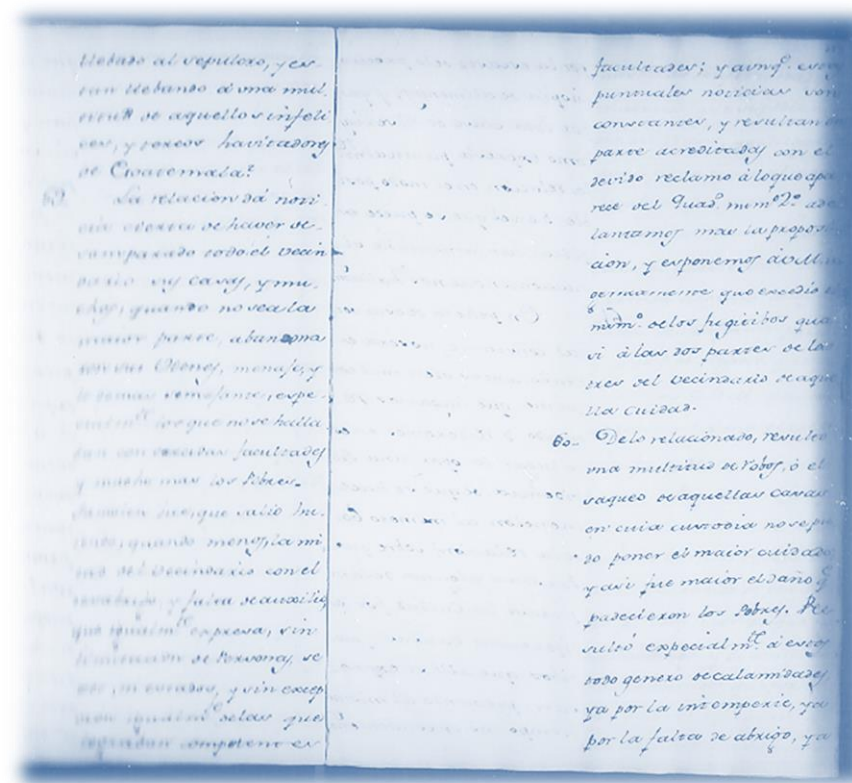 llebado al sepulcro, y es-
tan llebando á una mul-
titud de aquellos infeli
ces, y havitadores
de Guatemala?
59. La relacion dá noti-
cia cierta de haver de-
samparado todo el vecin
dario sus casas, y mu-
chos, quando no sea la
maior parte, abandona
ron sus menage, y
lo demas semejante, espe
cialm.te los que no se halla
ban con crecidas facultades
y mucho mas los Pobres.
tambien fue, que salio hu-
iendo, quando menos, la mi
tad del vecindario con el
y falta de auxilio,
que igualm.te expresa, sin
de Personas, se-
xos, ni estados, y sin excep
cion igualm.te de las que
competentes
facultades; y aunq.e estas
puntuales noticias son
constantes, y resultan en
parte acreditadas con el
devido reclamo á lo que apa
rece del Quad.no num.o 2.o ade
lantamos mas la proposi
cion, y exponemos á V.M.
que excedió el
num.o de los fugitibos qua
si á las dos partes de las
tres del vecindario de aque
lla cuidad.
60.. De lo relacionado, resultó
una multitud de robos, ó el
saqueo de aquellas casas
en cuia custodia no se pu
do poner el maior cuidado
y asi fue maior el daño q.e
padecieron los Pobres. Re
sultó especialm.te á estos
todo genero de calamidades,
ya por la intemperie, ya
por la falta de abrigo, ya